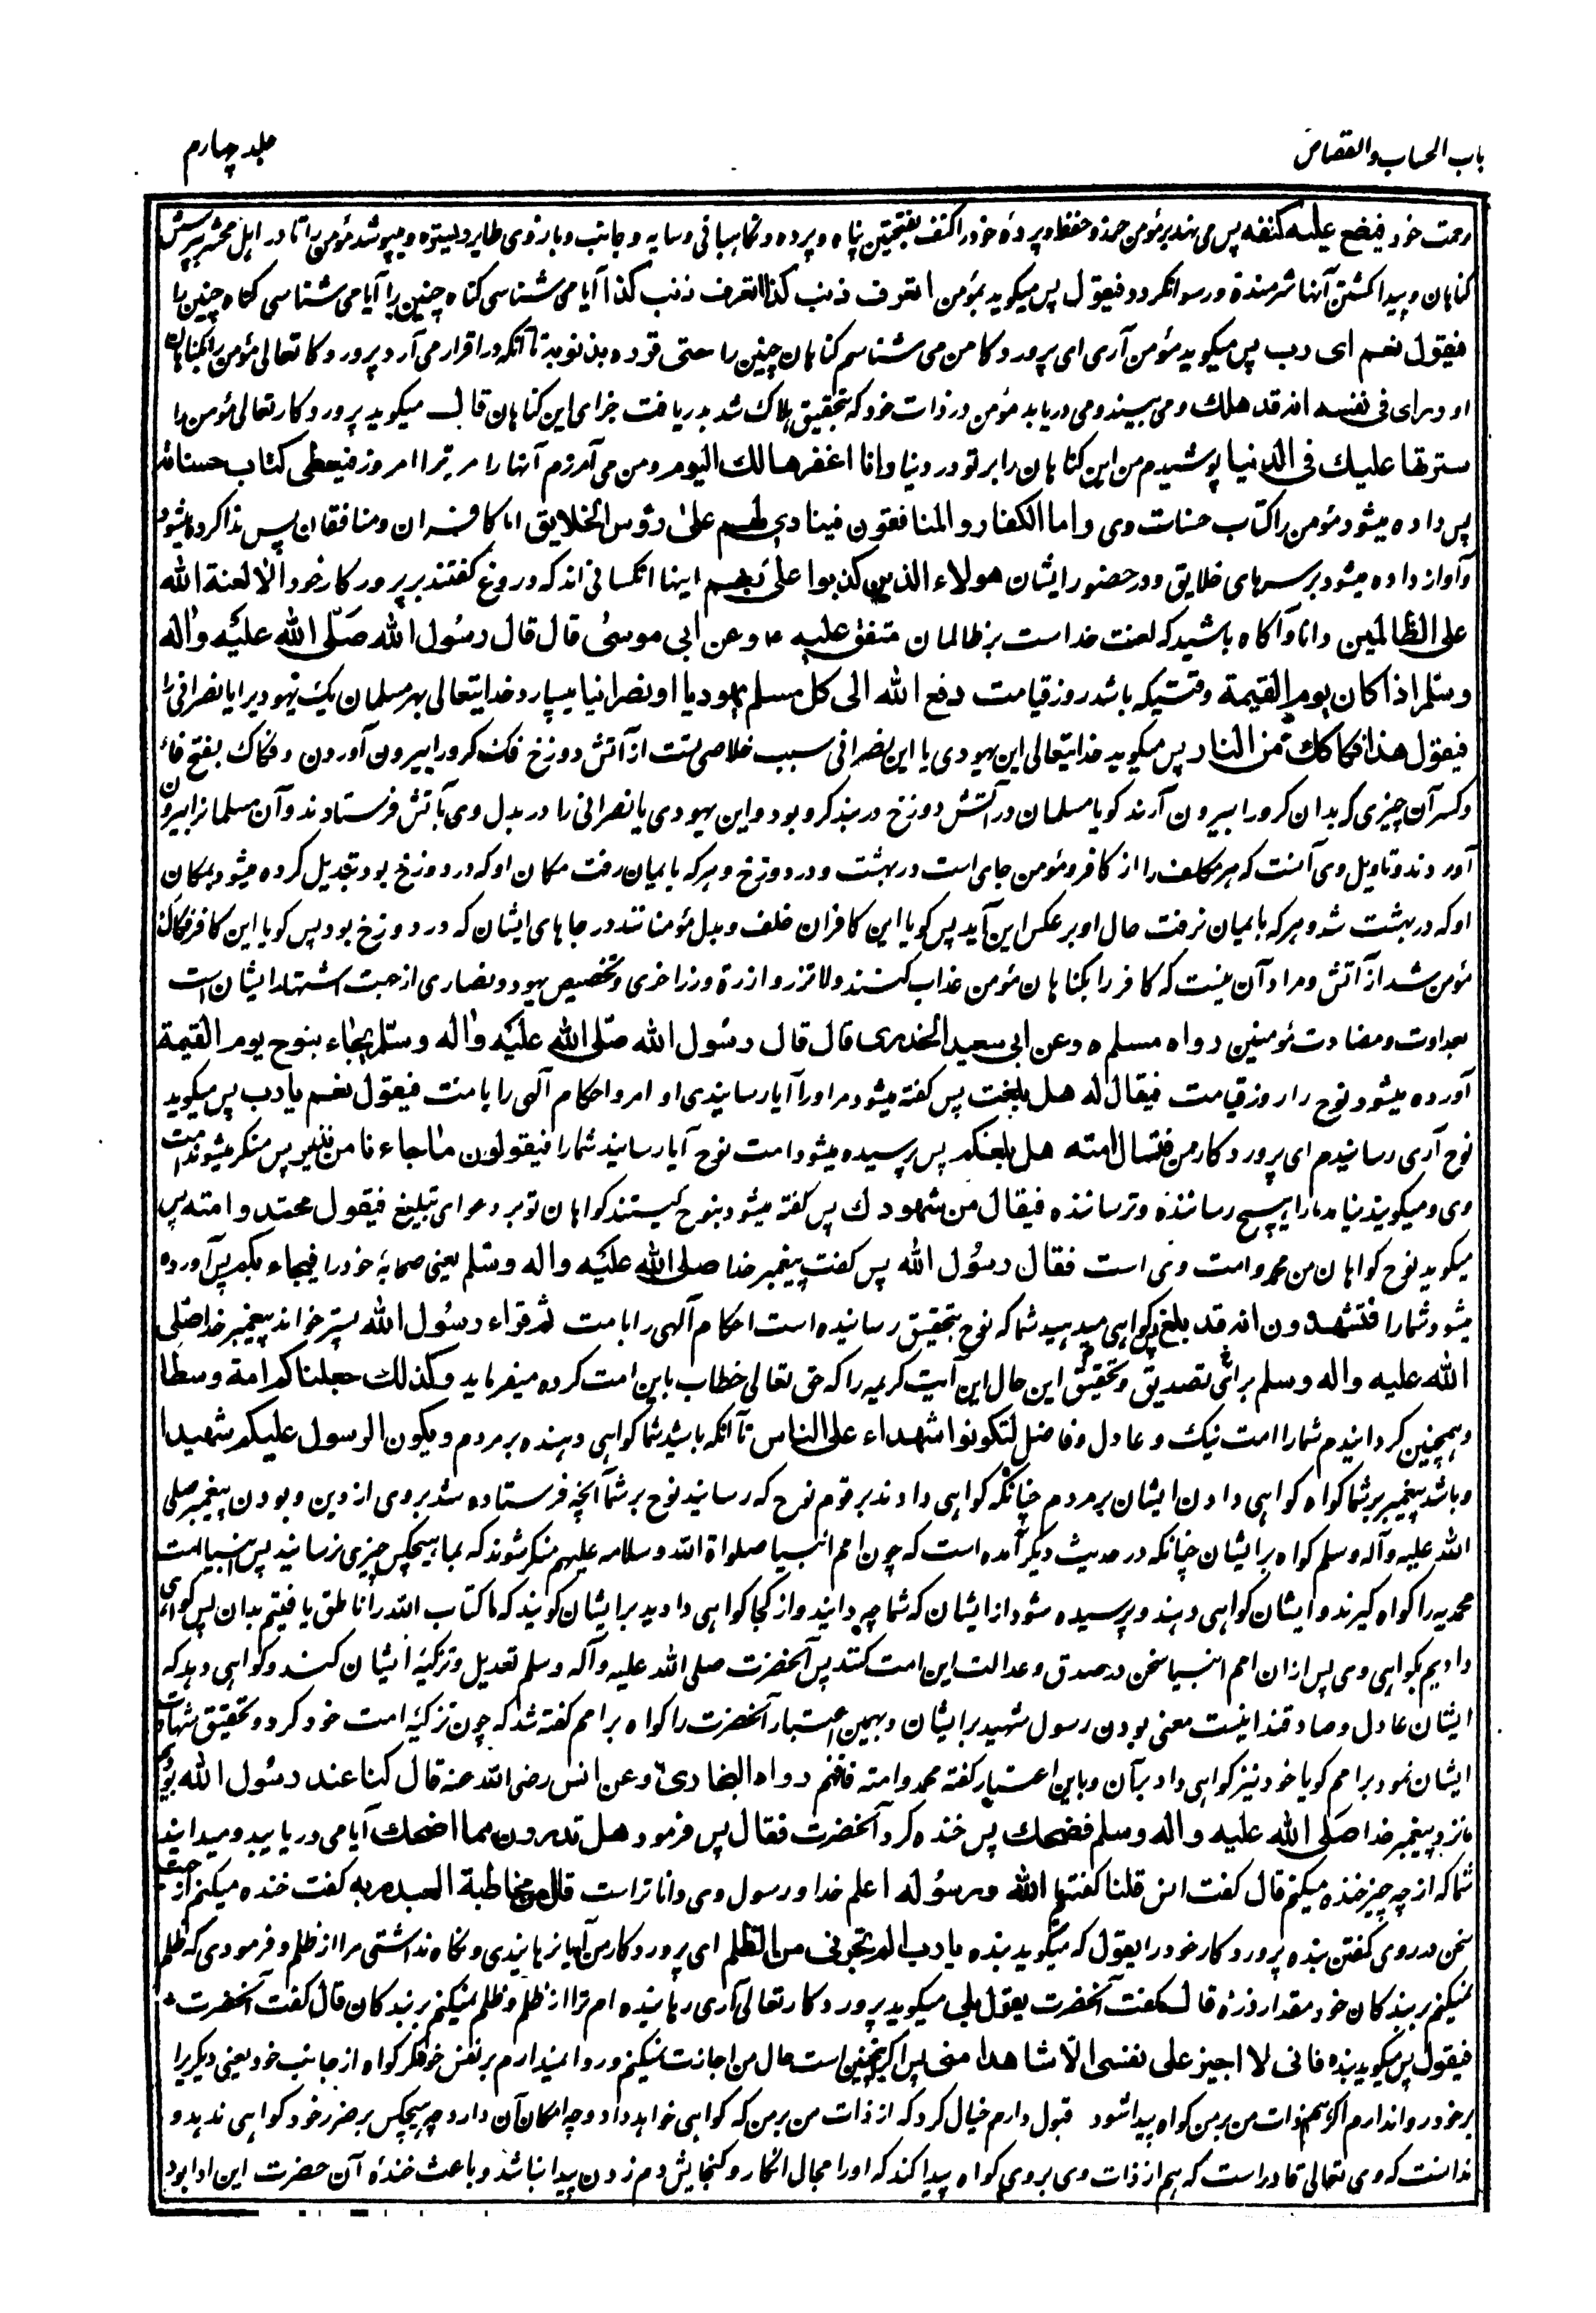 باب الحساب والقصاص
جلد چهارم
رحمت خود فیضع علیه کنفه پس می نهد بر مؤمن حرز و حفظ و پردهٔ خود را کنف بفتحتین پناه و پرده و نگاهبانی و سایه و جانب و بازوی طایر و لیستره و میپوشد مؤمن را تا در اهل محشر بپرسش
گناهان و پیدا گشتن آنها شرمنده و رسوا نگردد فیقول پس میگوید بمؤمن اتعرف ذنب کذا اتعرف ذنب کذا آیا می شناسی گناه چنین را آیا می شناسی گناه چنین را
فیقول نعم ای رب پس میگوید مؤمن آری ای پروردگار من می شناسم گناهان چنین را حتی قرره بذنوبه تا آنکه در اقرار می آرد پروردگار تعالی مؤمن را بگناهان
او و رای فی نفسه انه قد هلک و می بیند و می دریابد مؤمن در ذات خود که بتحقیق هلاک شد بدریافت جزای این گناهان قال میگوید پروردگار تعالی مؤمن را
سترتها علیک فی الدنیا پوشیدم من این گناهان را بر تو در دنیا وانا اغفرها لک الیوم و من می آمرزم آنها را مر ترا امروز فیعطی کتاب حسناته
پس داده میشود مؤمن را کتاب حسنات وی واما الکفار والمنافقون فینادی بهم علی رؤس الخلایق اما کافران و منافقان پس ندا کرده میشود
و آواز داده میشود بر سرهای خلایق و در حضور ایشان هولاء الذین کذبوا علی ربهم اینها آنکسانی اند که دروغ گفتند بر پروردگار خود الا لعنة الله
علی الظالمین دانا و آگاه باشید که لعنت خداست بر ظالمان متفق علیه ۴ وعن ابی موسی قال قال رسول الله صلی الله علیه واله
وسلم اذا کان یوم القیمة وقتیکه باشد روز قیامت دفع الله الی کل مسلم یهودیا او نصرانیا میسپارد خدایتعالی بهر مسلمان یک یهودیرا یا نصرانی را
فیقول هذا فکاکک من النار پس میگوید خدایتعالی این یهودی یا این نصرانی سبب خلاصی تست از آتش دوزخ فک گرو را بیرون آوردن و فکاک بفتح فاء
و کسر آن چیزی که بدان گرو را بیرون آرند گویا مسلمان در آتش دوزخ در بند گرو بود و این یهودی یا نصرانی را در بدل وی بآتش فرستادند و آن مسلمانرا بیرون
آوردند و تاویل وی آنست که هر مکلف را از کافر و مؤمن جای است در بهشت و در دوزخ و هر که با یمان رفت مکان او که در دوزخ بود تبدیل کرده میشود بمکان
او که در بهشت شد و هر که بایمان نرفت حال او بر عکس این آید پس گویا این کافران خلف و بدل مؤمنانند در جاهای ایشان که در دوزخ بود پس گویا این کافر فکاک
مؤمن شد از آتش و مراد آن نیست که کافر را بگناهان مؤمن عذاب کنند ولا تزر وازرة وزر اخری و تخصیص یهود و نصاری از جهت اشتهار ایشان است
بعداوت و مضادت مؤمنین رواه مسلم ۵ وعن ابی سعید الخدری قال قال رسول الله صلی الله علیه واله وسلم یجاء بنوح یوم القیمة
آورده میشود نوح را روز قیامت فیقال له هل بلغت پس گفته میشود مر او را آیا رسانیدی او امر و احکام آلهی را بامت فیقول نعم یا رب پس میگوید
نوح آری رسانیدم ای پروردگار من فتسال امته هل بلغکم پس پرسیده میشود امت نوح آیا رسانید شما را فیقولون ما جاءنا من نذیر پس منکر میشوند امت
وی و میگویند نیامد ما را هیچ رساننده و ترساننده فیقال من شهودک پس گفته میشود بنوح کیستند گواهان تو بر دعوای تبلیغ فیقول محمد وامته پس
میگوید نوح گواهان من محمد و امت وی است فقال رسول الله پس گفت پیغمبر خدا صلی الله علیه واله وسلم یعنی صحابهٔ خود را فیجاء بکم پس آورده
میشود شما را فتشهدون انه قد بلغ پس گواهی میدهید شما که نوح بتحقیق رسانیده است احکام آلهی را بامت ثم قراء رسول الله پستر خواند پیغمبر خدا صلی
الله علیه واله وسلم برای تصدیق و تحقیق این حال این آیت کریمه را که حق تعالی خطاب باین امت کرده میفرماید وکذلک جعلناکم امة وسطا
و همچنین گردانیدم شما را امت نیک و عادل و فاضل لتکونوا شهداء علی الناس تا آنکه باشید شما گواهی دهنده بر مردم ویکون الرسول علیکم شهیدا
و باشد پیغمبر بر شما گواه گواهی دادن ایشان بر مردم چنانکه گواهی دادند بر قوم نوح که رسانید نوح بر شما آنچه فرستاده شد بر وی از دین و بودن پیغمبر صلی
الله علیه وآله وسلم گواه بر ایشان چنانکه در حدیث دیگر آمده است که چون امم انبیا صلواة الله وسلامه علیهم منکر شوند که بما هیچکس چیزی نرسانید پس انبیا امت
محمدیه را گواه گیرند و ایشان گواهی دهند و پرسیده شود از ایشان که شما چه دانید و از کجا گواهی دادید بر ایشان گویند که ما کتاب الله را ناطق یافتیم بدان پس گواهی
دادیم بگواهی وی پس ازان امم انبیا سخن در صدق و عدالت این امت کنند پس آنحضرت صلی الله علیه وآله وسلم تعدیل و تزکیهٔ ایشان کند و گواهی دهد که
ایشان عادل و صادقند اینست معنی بودن رسول شهید بر ایشان و بهمین اعتبار آنحضرت را گواه بر امم گفته شد که چون تزکیهٔ امت خود کرد و تحقیق شهادت
ایشان نمود بر امم گویا خود نیز گواهی داد بر آن و باین اعتبار گفته محمد وامته فافهم رواه البخاری ۶ وعن انس رضی الله عنه قال کنا عند رسول الله بودیم
ما نزد پیغمبر خدا صلی الله علیه واله وسلم فضحک پس خنده کرد آنحضرت فقال پس فرمود هل تدرون مما اضحک آیا می دریابید و میدانید
شما که از چه چیز خنده میکنم قال گفت انس قلنا گفتیم الله ورسوله اعلم خدا و رسول وی داناتر است قال من مخاطبة العبد ربه گفت خنده میکنم از جهت
سخن در روی گفتن بنده پروردگار خود را یقول که میگوید بنده یا رب الم تجرنی من الظلم ای پروردگار من آیا نرهانیدی و نگاه نداشتی مرا از ظلم و فرمودی که ظلم
نمیکنم بر بندگان خود مقدار ذره قال گفت آنحضرت یقول بلی میگوید پروردگار تعالی آری رهانیده ام ترا از ظلم و ظلم نمیکنم بر بندگان قال گفت آنحضرت
فیقول پس میگوید بنده فانی لا اجیز علی نفسی الا شاهدا منی پس اگر همچنین است حال من اجازت نمیکنم و روا نمیدارم بر نفس خود مگر گواه از جانب خود یعنی دیگریرا
بر خود روا ندارم اگر هم ذات من بر من گواه پیدا شود قبول دارم خیال کرد که از ذات من بر من که گواهی خواهد داد و چه امکان آن دارد چه هیچکس بر ضرر خود گواهی ندهد و
ندانست که وی تعالی قادر است که هم از ذات وی بر وی گواه پیدا کند که او را مجال انکار و گنجایش دم زدن پیدا نباشد و باعث خندهٔ آن حضرت این ادا بود